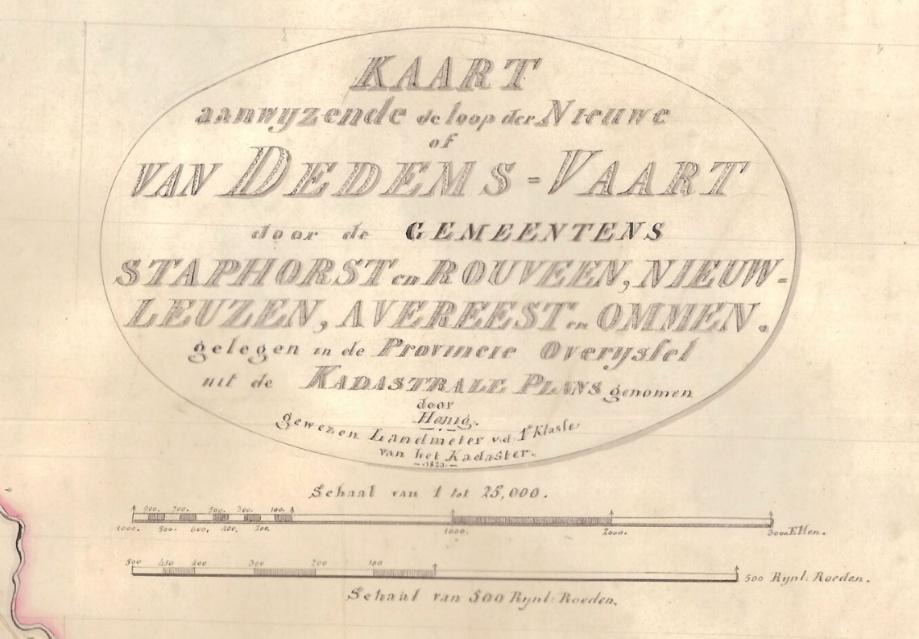 KAART
aanwyzende de loop der Nieuwe
of
VAN DEDEMS=VAART
door de GEMEENTENS
STAPHORST en ROUVEEN, NIEUW=
LEUZEN, AVEREEST en OMMEN.
gelegen in de Provincie Overyssel
uit de KADASTRALE PLANS genomen
door
Honig.
gewezen Landmeter v.d. 1e Klasse
van het Kadaster.
Schaal van 1 tot 25,000.
900. 700. 500. 300. 100.
1000. 800. 600. 400. 200. 1000. 2000. 3000 Ellen.
500 450 400 300 200 100 500 Rynl: Roeden.
Schaal van 500 Rynl: Roeden.